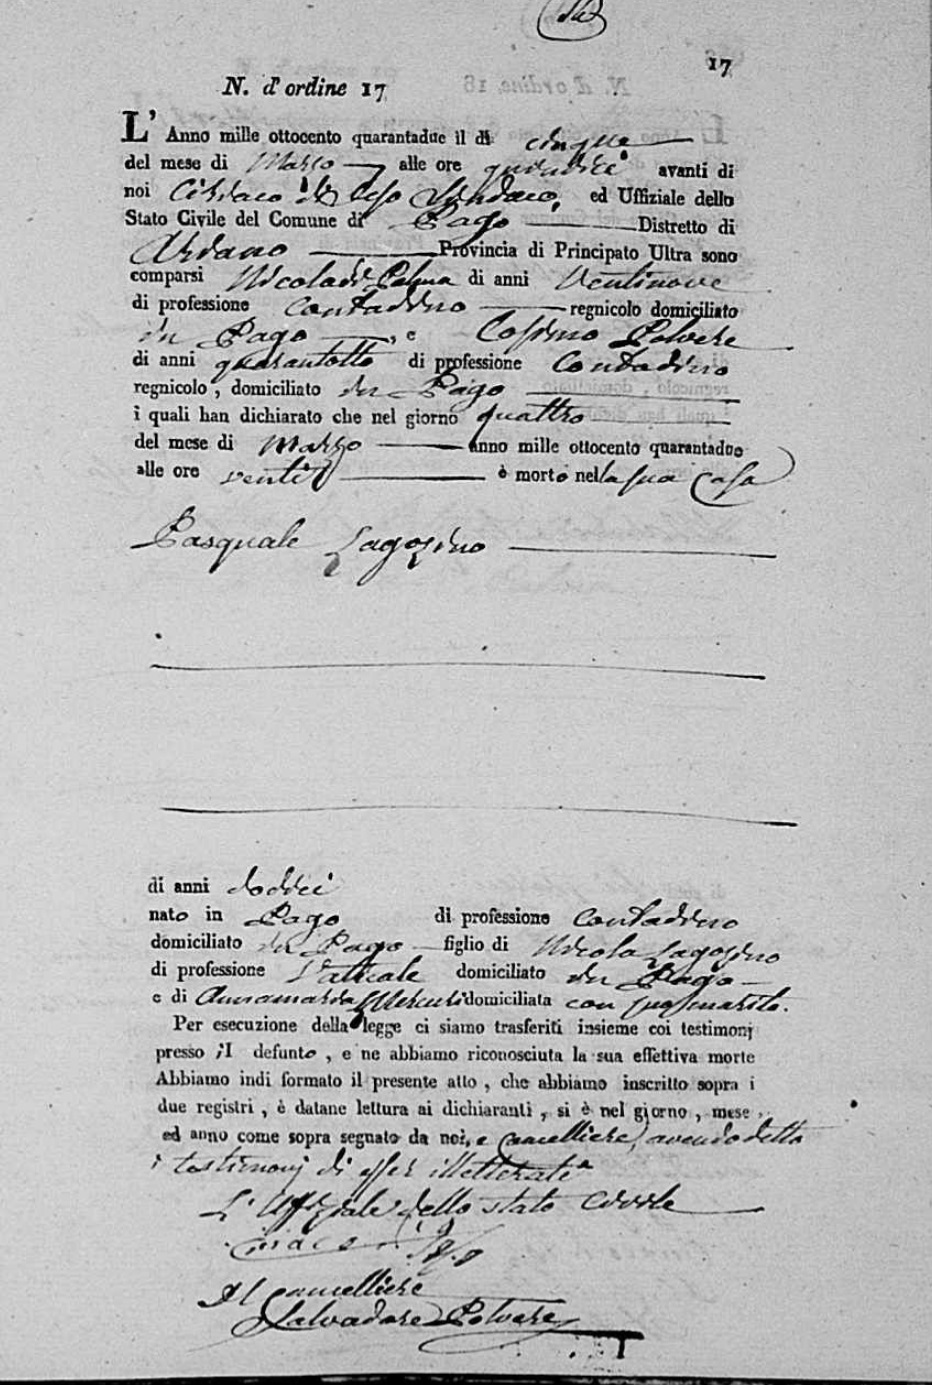 17
N. d'ordine 17
L' Anno mille ottocento quarantadue il dì cinque
del mese di Marzo alle ore quindici avanti di
noi Ciriaco de Sindaco, ed Uffiziale dello
Stato Civile del Comune di Pago Distretto di
Ariano Provincia di Principato Ultra sono
comparsi Nicola di Palma di anni Ventinove
di professione Contadino regnicolo domiciliato
in Pago, e Cosimo Polvere
di anni quarantotto di professione Contadino
regnicolo, domiciliato in Pago
i quali han dichiarato che nel giorno quattro
del mese di Marzo anno mille ottocento quarantadue
alle ore venti è morto nella sua Casa
Pasquale Lagozino
di anni dodici
nato in Pago di professione Contadino
domiciliato in Pago figlio di Nicola Lagozino
di professione Vaticale domiciliato in Pago
e di Annamaria Mercuri domiciliata con suo marito.
Per esecuzione della legge ci siamo trasferiti insieme coi testimonj
presso il defunto, e ne abbiamo riconosciuta la sua effettiva morte
Abbiamo indi formato il presente atto, che abbiamo inscritto sopra i
due registri, è datane lettura ai dichiaranti, si è nel giorno, mese
ed anno come sopra segnato da noi, e Cancelliere, avendo detto
i testimonj di esser illetterati
L'Uffiziale dello stato Civile
Il Cancelliere
Salvadore Polvere